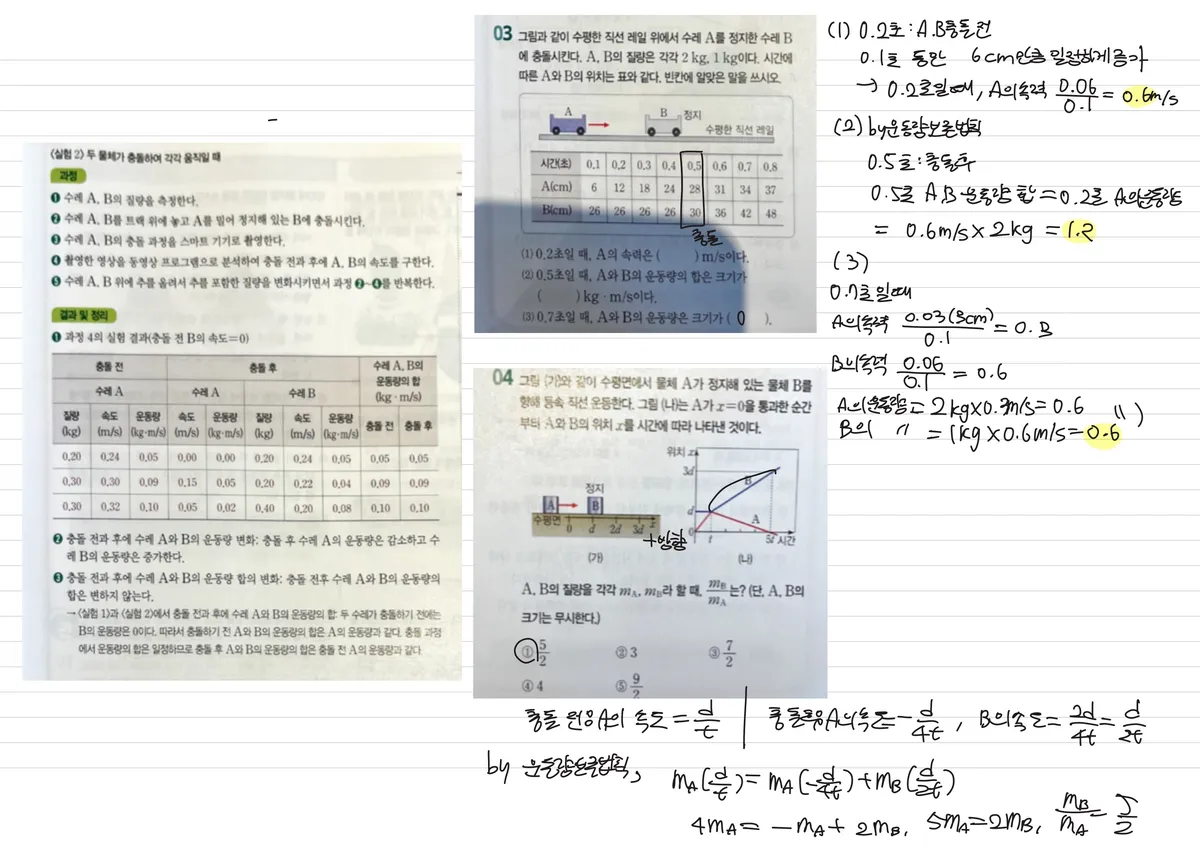 〈실험 2〉 두 물체가 충돌하여 각각 움직일 때
과정
❶ 수레 A, B의 질량을 측정한다.
❷ 수레 A, B를 트랙 위에 놓고 A를 밀어 정지해 있는 B에 충돌시킨다.
❸ 수레 A, B의 충돌 과정을 스마트 기기로 촬영한다.
❹ 촬영한 영상을 동영상 프로그램으로 분석하여 충돌 전과 후에 A, B의 속도를 구한다.
❺ 수레 A, B 위에 추를 올려서 추를 포함한 질량을 변화시키면서 과정 ❷~❹를 반복한다.
결과 및 정리
❶ 과정 4의 실험 결과(충돌 전 B의 속도=0)
충돌 전 충돌 후 수레 A, B의 운동량의 합 (kg·m/s)
수레 A 수레 A 수레 B
질량 (kg) 속도 (m/s) 운동량 (kg·m/s) 속도 (m/s) 운동량 (kg·m/s) 질량 (kg) 속도 (m/s) 운동량 (kg·m/s) 충돌 전 충돌 후
0.20 0.24 0.05 0.00 0.00 0.20 0.24 0.05 0.05 0.05
0.30 0.30 0.09 0.15 0.05 0.20 0.22 0.04 0.09 0.09
0.30 0.32 0.10 0.05 0.02 0.40 0.20 0.08 0.10 0.10
❷ 충돌 전과 후에 수레 A와 B의 운동량 변화: 충돌 후 수레 A의 운동량은 감소하고 수
레 B의 운동량은 증가한다.
❸ 충돌 전과 후에 수레 A와 B의 운동량 합의 변화: 충돌 전후 수레 A와 B의 운동량의
합은 변하지 않는다.
→ 〈실험 1〉과 〈실험 2〉에서 충돌 전과 후에 수레 A와 B의 운동량의 합: 두 수레가 충돌하기 전에는
B의 운동량은 0이다. 따라서 충돌하기 전 A와 B의 운동량의 합은 A의 운동량과 같다. 충돌 과정
에서 운동량의 합은 일정하므로 충돌 후 A와 B의 운동량의 합은 충돌 전 A의 운동량과 같다.
03 그림과 같이 수평한 직선 레일 위에서 수레 A를 정지한 수레 B
에 충돌시킨다. A, B의 질량은 각각 2 kg, 1 kg이다. 시간에
따른 A와 B의 위치는 표와 같다. 빈칸에 알맞은 말을 쓰시오.
A B 정지
수평한 직선 레일
시간(초) 0.1 0.2 0.3 0.4 0.5 0.6 0.7 0.8
A(cm) 6 12 18 24 28 31 34 37
B(cm) 26 26 26 26 30 36 42 48
충돌
(1) 0.2초일 때, A의 속력은 ( ) m/s이다.
(2) 0.5초일 때, A와 B의 운동량의 합은 크기가
( ) kg·m/s이다.
(3) 0.7초일 때, A와 B의 운동량은 크기가 ( 0 ).
04 그림 (가)와 같이 수평면에서 물체 A가 정지해 있는 물체 B를
향해 등속 직선 운동한다. 그림 (나)는 A가 x=0을 통과한 순간
부터 A와 B의 위치 x를 시간에 따라 나타낸 것이다.
정지
A B
수평면 0 d 2d 3d x
+방향
(가)
위치 x
3d
B
d
A
0 t 5t 시간
(나)
A, B의 질량을 각각 mA, mB라 할 때, mB/mA는? (단, A, B의
크기는 무시한다.)
① 5/2 ② 3 ③ 7/2
④ 4 ⑤ 9/2
(1) 0.2초 : A.B충돌전
0.1초 동안 6cm만큼 일정하게 증가
→ 0.2초일때, A의속력 0.06/0.1 = 0.6m/s
(2) by운동량보존법칙
0.5초 : 충돌후
0.5초 A.B 운동량 합 = 0.2초 A의운동량
= 0.6m/s × 2kg = 1.2
(3)
0.7초일때
A의속력 0.03(3cm)/0.1 = 0.3
B의속력 0.06/0.1 = 0.6
A의운동량= 2kg×0.3m/s= 0.6
B의 〃 = 1kg×0.6m/s=0.6
충돌 전의 A의 속도 = d/t | 충돌후A의속도= -d/4t , B의속도= 2d/4t = d/2t
by 운동량보존법칙,
mA(d/t)= mA(-d/4t)+mB(d/2t)
4mA= -mA+ 2mB, 5mA=2mB, mB/mA = 5/2